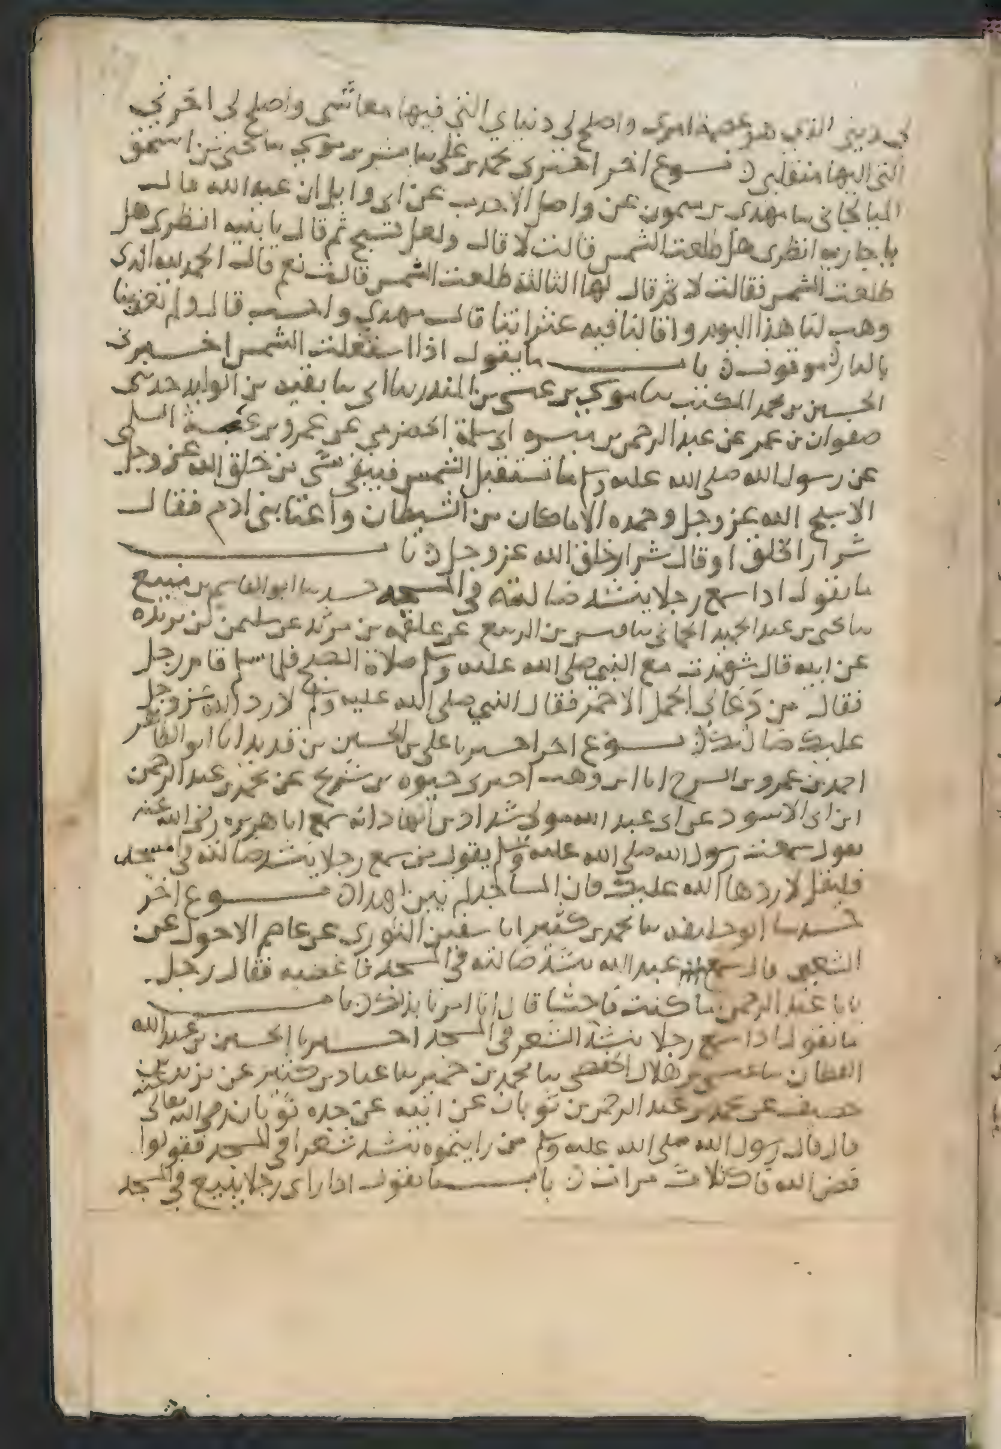 لي ديني الذي هو عصمة امري واصلح لي دنياي التي فيها معاشي واصلح لي اخرتي
التي اليها منقلبي نوع اخر اخبرني محمد بن علي سا بشر بن موسي سا يحيى بن اسحق
سا مهدي بن ميمون عن واصل الاحدب عن ابي وايل ان عبد الله قال
يا جارية انظري هل طلعت الشمس قالت لا قال وجعل يسبح ثم قال يا بنيه انظري هل
طلعت الشمس فقالت لا ثم قال لها الثالثة طلعت الشمس قالت نعم قال الحمد لله الذي
وهب لنا هذا اليوم واقالنا فيه عثراتنا قال مهدي واحسب قال ولم يعذبنا
بالنار موقوف ن باب ما يقول اذا استقلت الشمس اخبرني
الحسين بن محمد المكتب سا موسي بن عيسى بن المنذر سا ابي سا بقية بن الوليد حدثني
صفوان بن عمر عن عبد الرحمن بن ميسرة ابي سلمة الحضرمي عن عمرو بن عبسة السلمي
عن رسول الله صلى الله عليه وسلم ما تستقبل الشمس فيبقى شي من خلق الله عز وجل
الا سبح الله عز وجل وحمده الا ما كان من الشيطان واعتا بني ادم فقال
شرار الخلق او قال شرار خلق الله عز وجل ن باب
ما يقول اذا سمع رجلا ينشد ضالته في المسجد حدثنا ابو القاسم بن منيع
سا يحيى بن عبد الحميد الحماني سا قيس بن الربيع عن علقمه بن مرثد عن سليمن بن بريده
عن ابيه قال شهدت مع النبي صلى الله عليه وسلم صلاة الصبح فلما سلم قام رجل
فقال من دعا الى الجمل الاحمر فقال النبي صلى الله عليه وسلم لا رد الله عز وجل
عليك ضالتك نوع اخر اخبرنا علي بن الحسين بن قديد انا ابو الطاهر
احمد بن عمرو بن السرح انا ابن وهب اخبرني حيوه بن شريح عن محمد بن عبد الرحمن
ابن ابي الاسود عن ابي عبد الله مولى شداد بن الهاد انه سمع ابا هريره رضي الله عنه
يقول سمعت رسول الله صلى الله عليه وسلم يقول من سمع رجلا ينشد ضالته في مسجد
فليقل لا ردها الله عليك فان المساجد لم تبن لهذا ن نوع اخر
حدثنا ابو خليفه سا محمد بن كثير انا سفين الثوري عن عاصم الاحول عن
الشعبي قال سمع عبد الله ينشد ضالته في المسجد فاغضبه فقال رجل
يابا عبد الرحمن ما كنت فاحشا قال انا امرنا بذلك ن باب
ما يقول اذا سمع رجلا ينشد الشعر في المسجد اخبرنا الحسين بن عبد الله
القطان سا عيسى بن هلال الحمصي سا محمد بن حمير سا عباد بن كثير عن يزيد بن
خصيفة عن محمد بن عبد الرحمن بن ثوبان عن ابيه عن جده ثوبان رضي الله تعالى عنه
قال قال رسول الله صلى الله عليه وسلم من رايتموه ينشد شعرا في المسجد فقولوا
فض الله فاك ثلاث مرات ن باب ما يقول اذا راى رجلا يبيع في المسجد